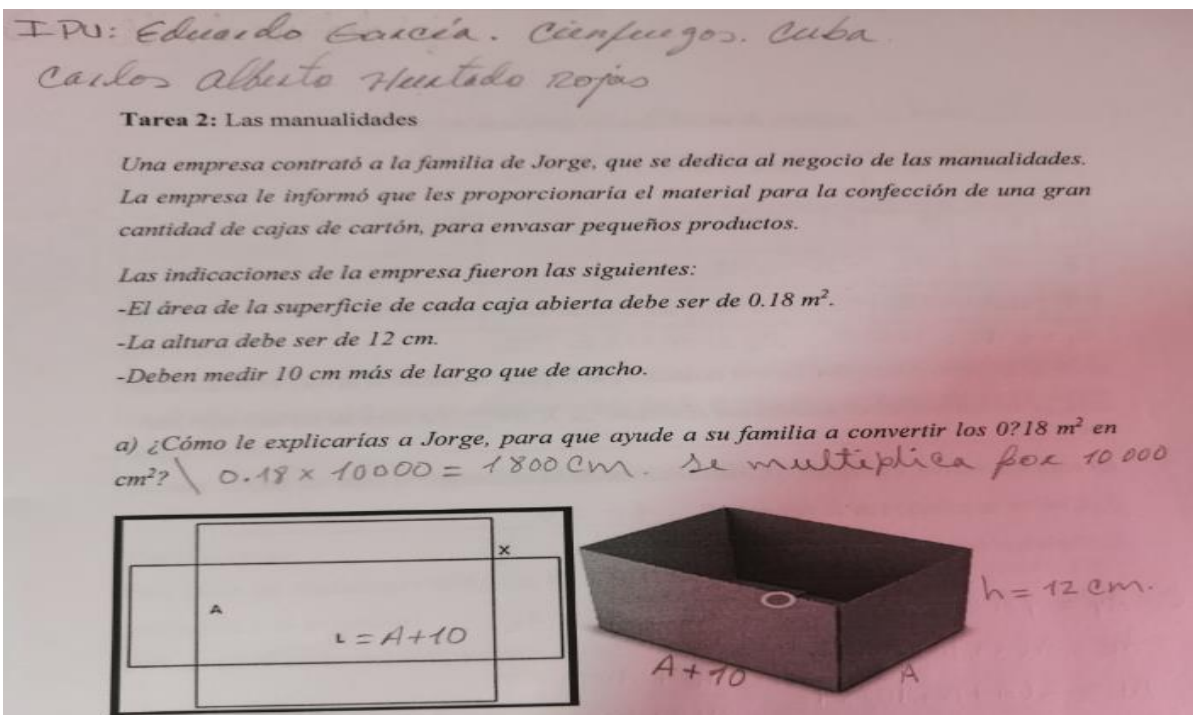 IPU: Eduardo García. Cienfuegos. Cuba.
Carlos Alberto Hurtado Rojas
Tarea 2: Las manualidades
Una empresa contrató a la familia de Jorge, que se dedica al negocio de las manualidades.
La empresa le informó que les proporcionaría el material para la confección de una gran
cantidad de cajas de cartón, para envasar pequeños productos.
Las indicaciones de la empresa fueron las siguientes:
-El área de la superficie de cada caja abierta debe ser de 0.18 m².
-La altura debe ser de 12 cm.
-Deben medir 10 cm más de largo que de ancho.
a) ¿Cómo le explicarías a Jorge, para que ayude a su familia a convertir los 0?18 m² en
cm²? \ 0.18 x 10000 = 1800 cm. Se multiplica por 10 000
X
A
L = A+10
h = 12 cm.
A+10
A